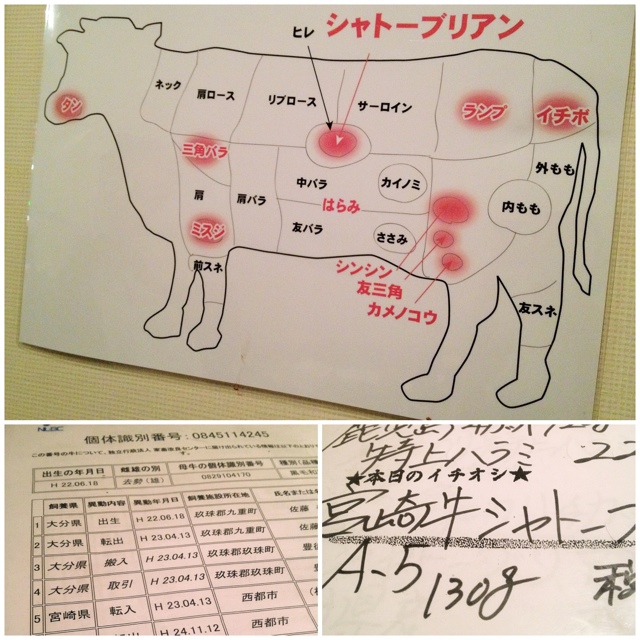 シャトーブリアン
ヒレ
ネック
肩ロース
リブロース
サーロイン
ランプ
イチボ
タン
三角バラ
外もも
肩
肩バラ
中バラ
カイノミ
はらみ
内もも
ミスジ
友バラ
ささみ
前スネ
シンシン
友三角
カメノコウ
友スネ
NLBC
個体識別番号:0845114245
出生の年月日 雌雄の別 母牛の個体識別番号
H 22.06.18 去勢(雄) 0829104170 黒毛和
飼養県 異動内容 異動年月日 飼養施設所在地 氏名または
1 大分県 出生 H 22.06.18 玖珠郡九重町 佐藤
2 大分県 転出 H 23.04.13 玖珠郡九重町 佐藤
3 大分県 搬入 H 23.04.13 玖珠郡玖珠町
4 大分県 取引 H 23.04.13 玖珠郡玖珠町
5 宮崎県 転入 H 23.04.13 西都市
H 24.11.12 西都市
牛特上ハラミ 22
★本日のイチオシ★
宮崎牛シャトーブ
A-5 130g